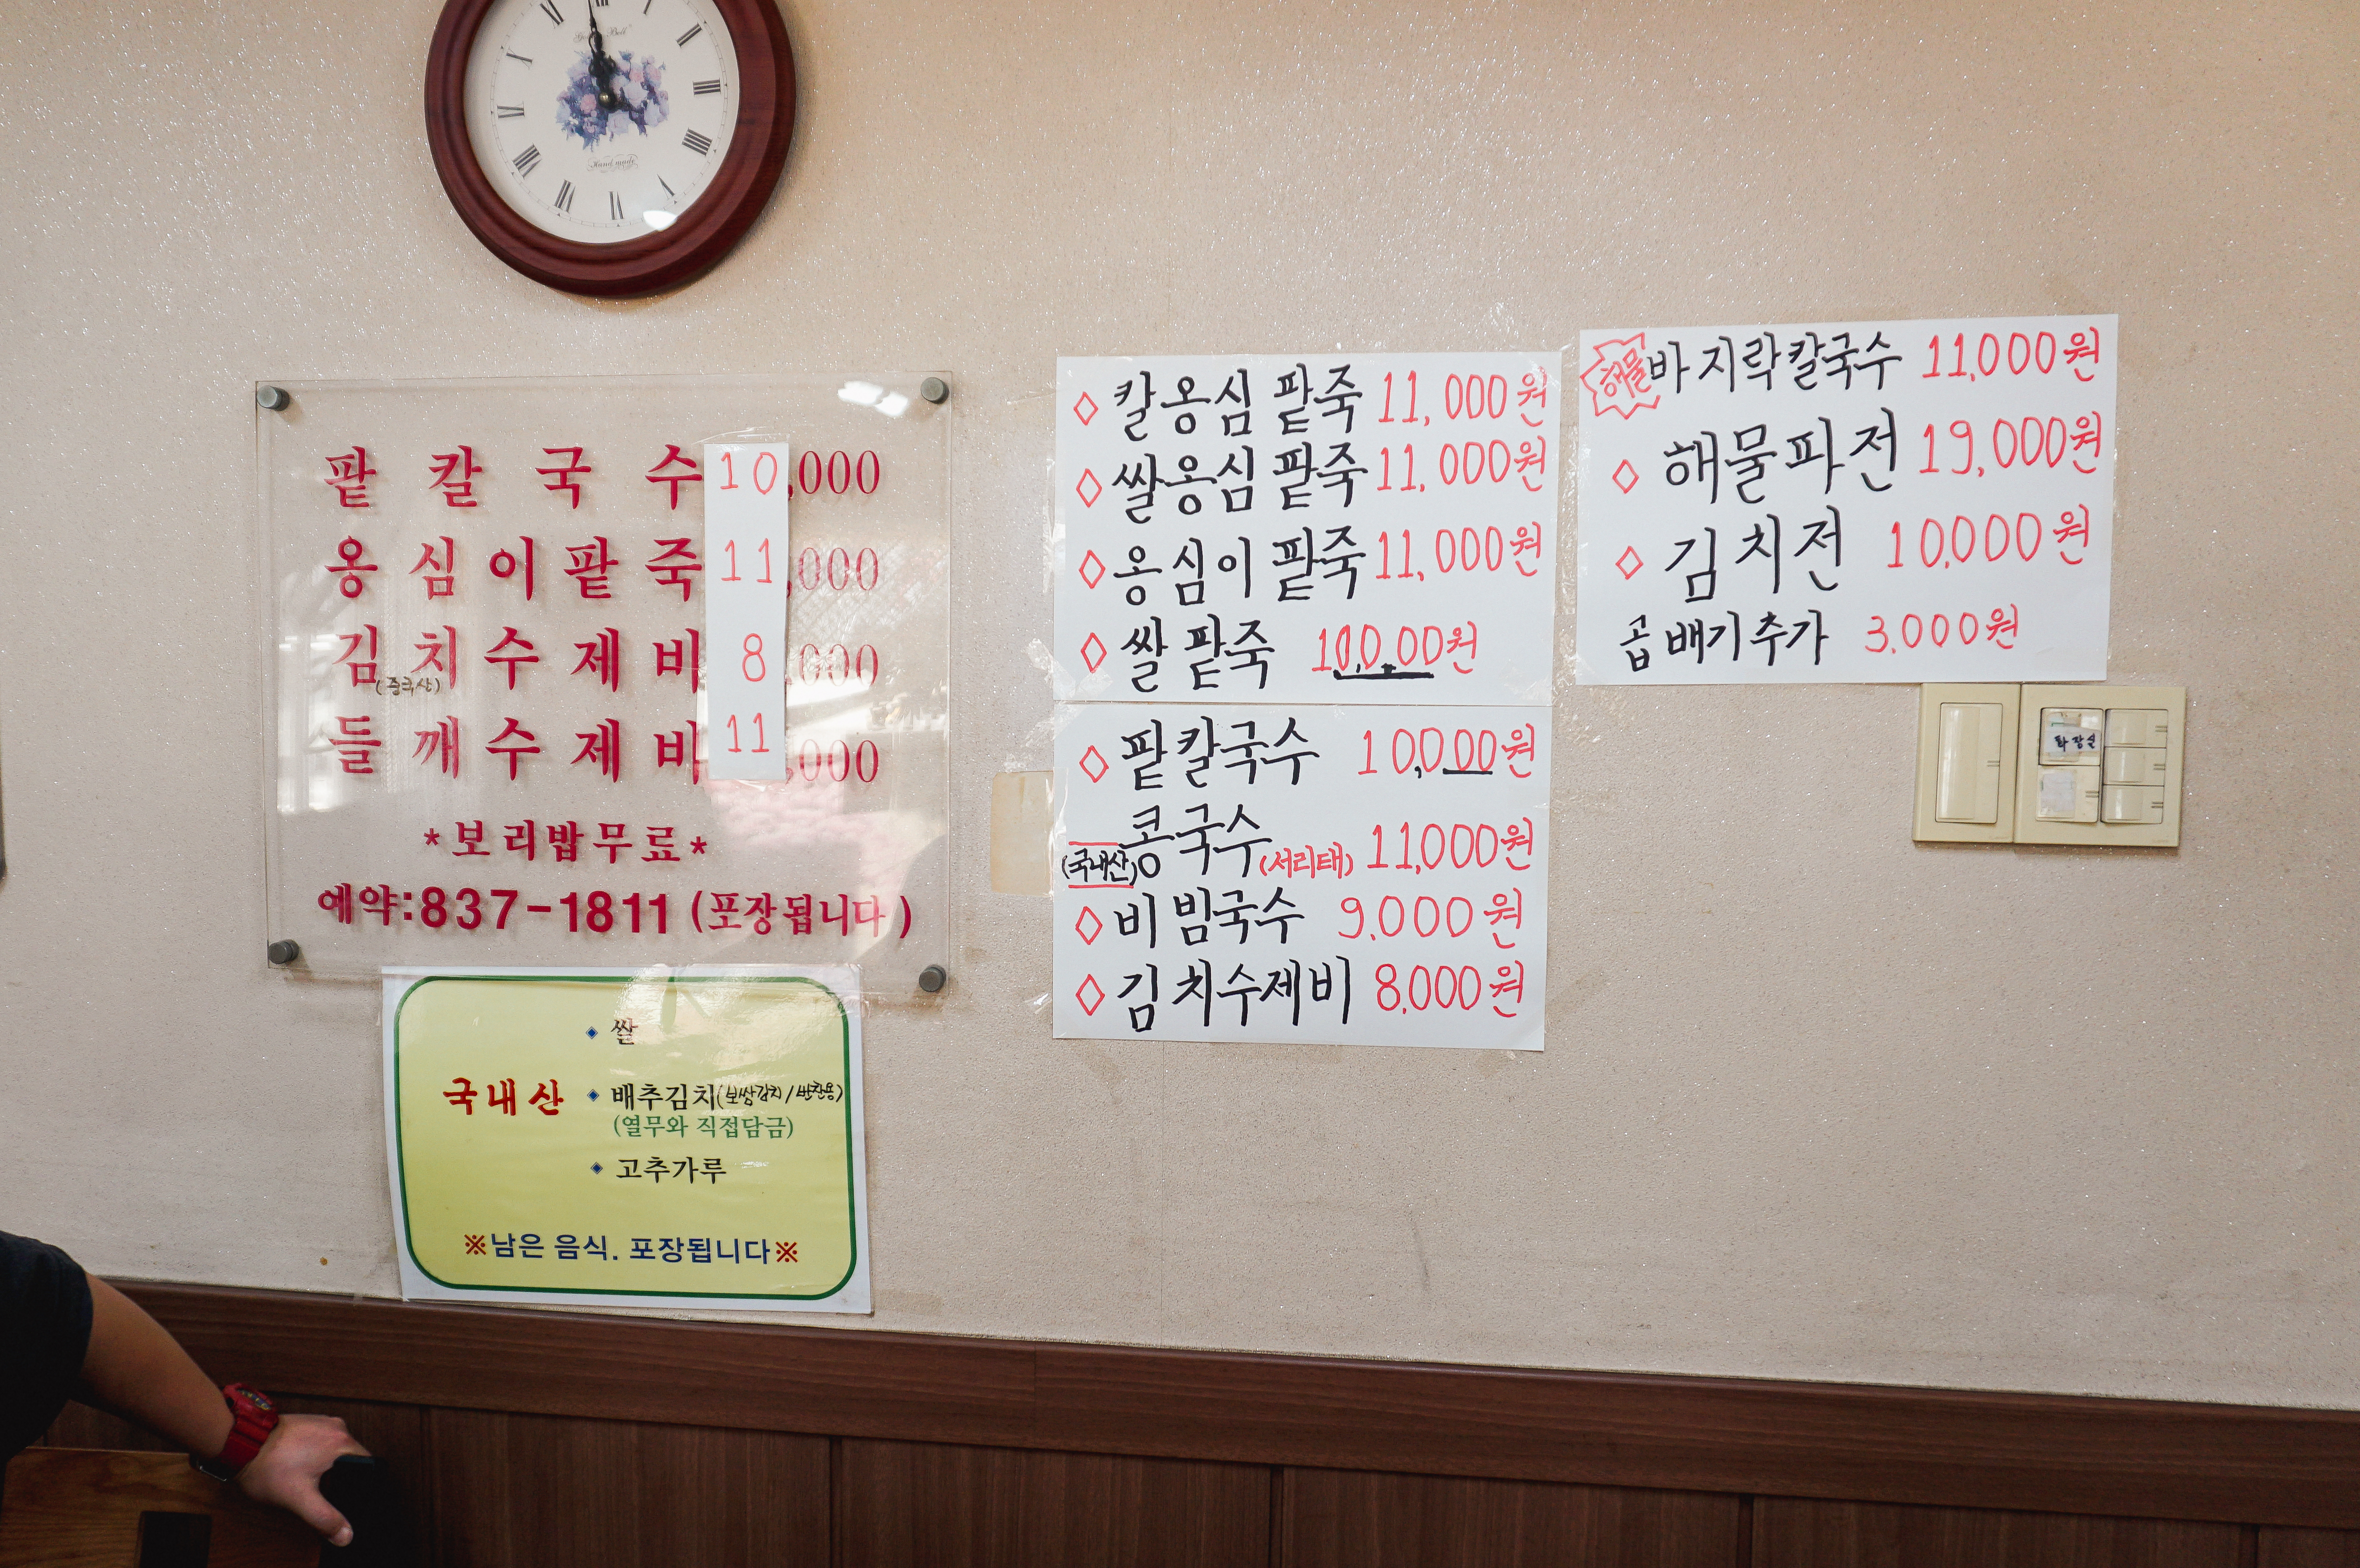 Hand made
팥 칼 국 수 10,000
옹 심 이 팥 죽 11,000
김 치 수 제 비 8,000
(중국산)
들 깨 수 제 비 11,000
*보리밥무료*
예약:837-1811 (포장됩니다)
◆ 쌀
국내산 ◆ 배추김치(보쌈김치/반찬용)
(열무와 직접담금)
◆ 고추가루
※남은 음식. 포장됩니다※
◇ 칼옹심팥죽 11,000원
◇ 쌀옹심팥죽 11,000원
◇ 옹심이팥죽 11,000원
◇ 쌀팥죽 10,000원
◇ 팥칼국수 10,000원
(국내산)콩국수(서리태) 11,000원
◇ 비빔국수 9,000원
◇ 김치수제비 8,000원
해물바지락칼국수 11,000원
◇ 해물파전 19,000원
◇ 김치전 10,000원
곱배기추가 3,000원
화장실